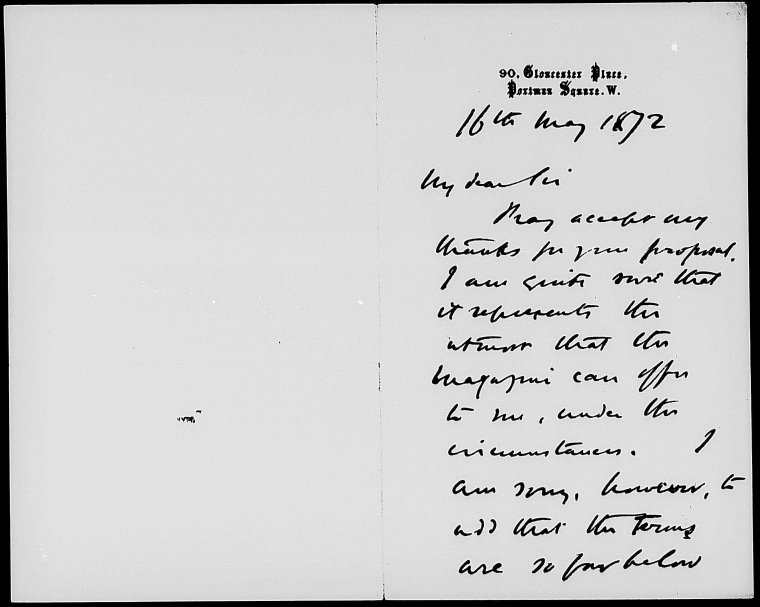 90, Gloucester Place,
Portman Square. W.
16th May 1872
My dear Sir
Pray accept my
thanks for your proposal.
I am quite sure that
it represents the
utmost that the
magazine can offer
to me, under the
circumstances. I
am sorry, however, to
add that the terms
are so far below